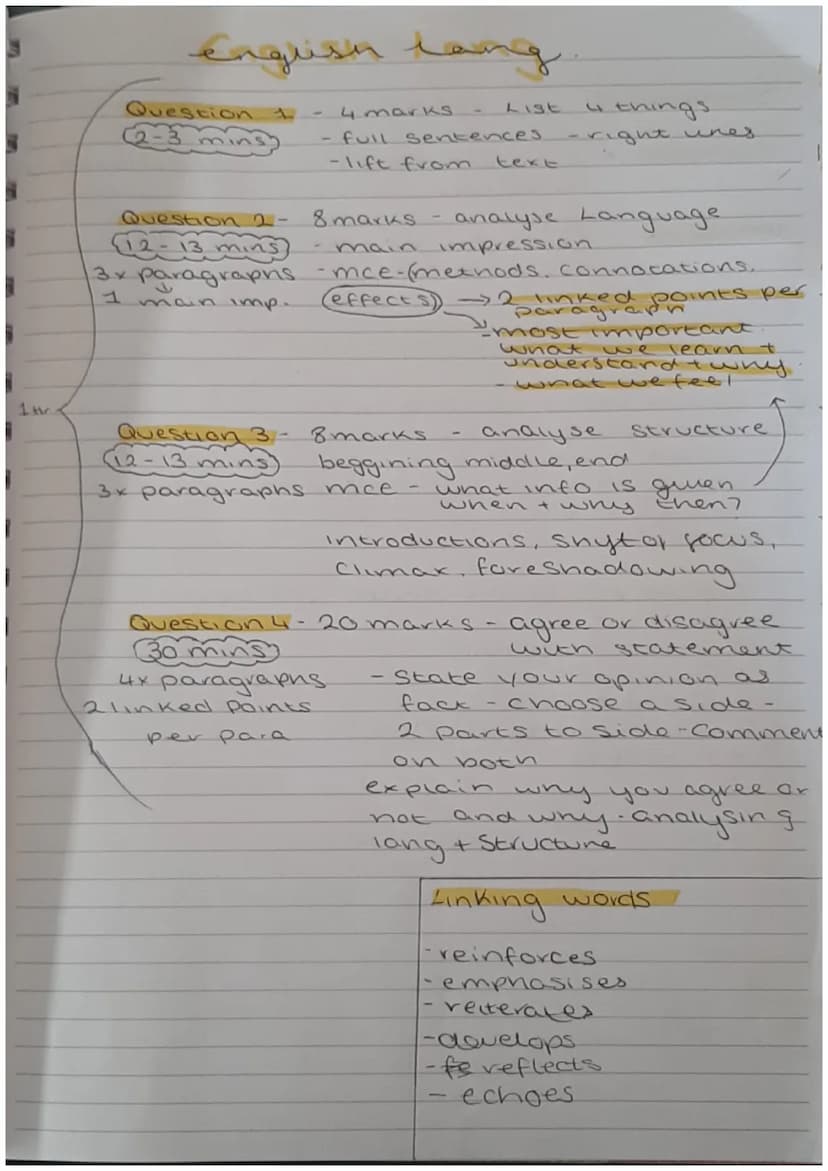 English Lang.
Question 1 - 4 marks - List 4 things
2-3 mins - full sentences - right lines
- lift from text
Question 2 - 8 marks - analyse Language
12-13 mins - main impression
3x paragraphs - mce - (methods, connotations,
1 main imp. effects) → 2 linked points per
paragraph
- most important
what we learn +
understand + why.
- what we feel
1hr
Question 3 - 8 marks - analyse structure
12-13 mins beggining middle, end
3x paragraphs mce - what info is given
when + why then?
introductions, shift of focus,
Climax, foreshadowing
Question 4 - 20 marks - agree or disagree
30 mins with statement
4x paragraphs - State your opinion as
2 linked points fact - choose a side -
per para 2 parts to side - Comment
on both
explain why you agree or
not and why - analysing
lang + Structure
Linking words
- reinforces
- emphasises
- reiterates
- develops
- reflects
- echoes